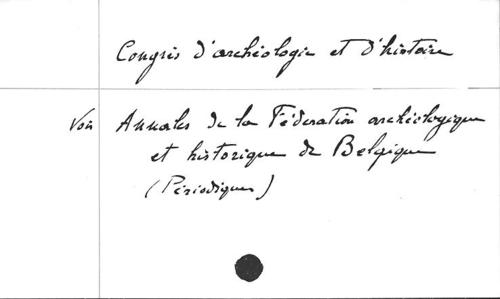 Congrès d'archéologie et d'histoire
Voir Annales de la Fédération archéologique
et historique de Belgique
(Périodiques)